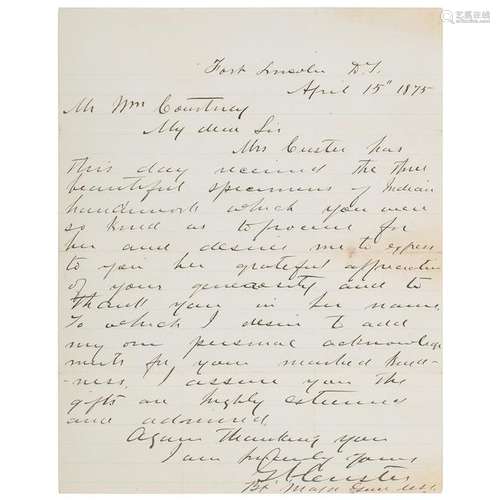 艺典在线
yidianchina.com
Fort Lincoln D.T.
April 15" 1875
Mr Wm Courtnay
My dear Sir
Mrs Custer has
this day received the three
beautiful specimens of Indian
handiwork which you were
so kind as to procure for
her and desires me to express
to you her grateful appreciation
of your generosity and to
thank you in her name.
To which I desire to add
my own personal acknowledge
ments for your marked kind-
-ness. I assure you the
gifts are highly esteemed
and admired.
Again thanking you
I am truly yours
G A Custer
Bt Major Genl USA